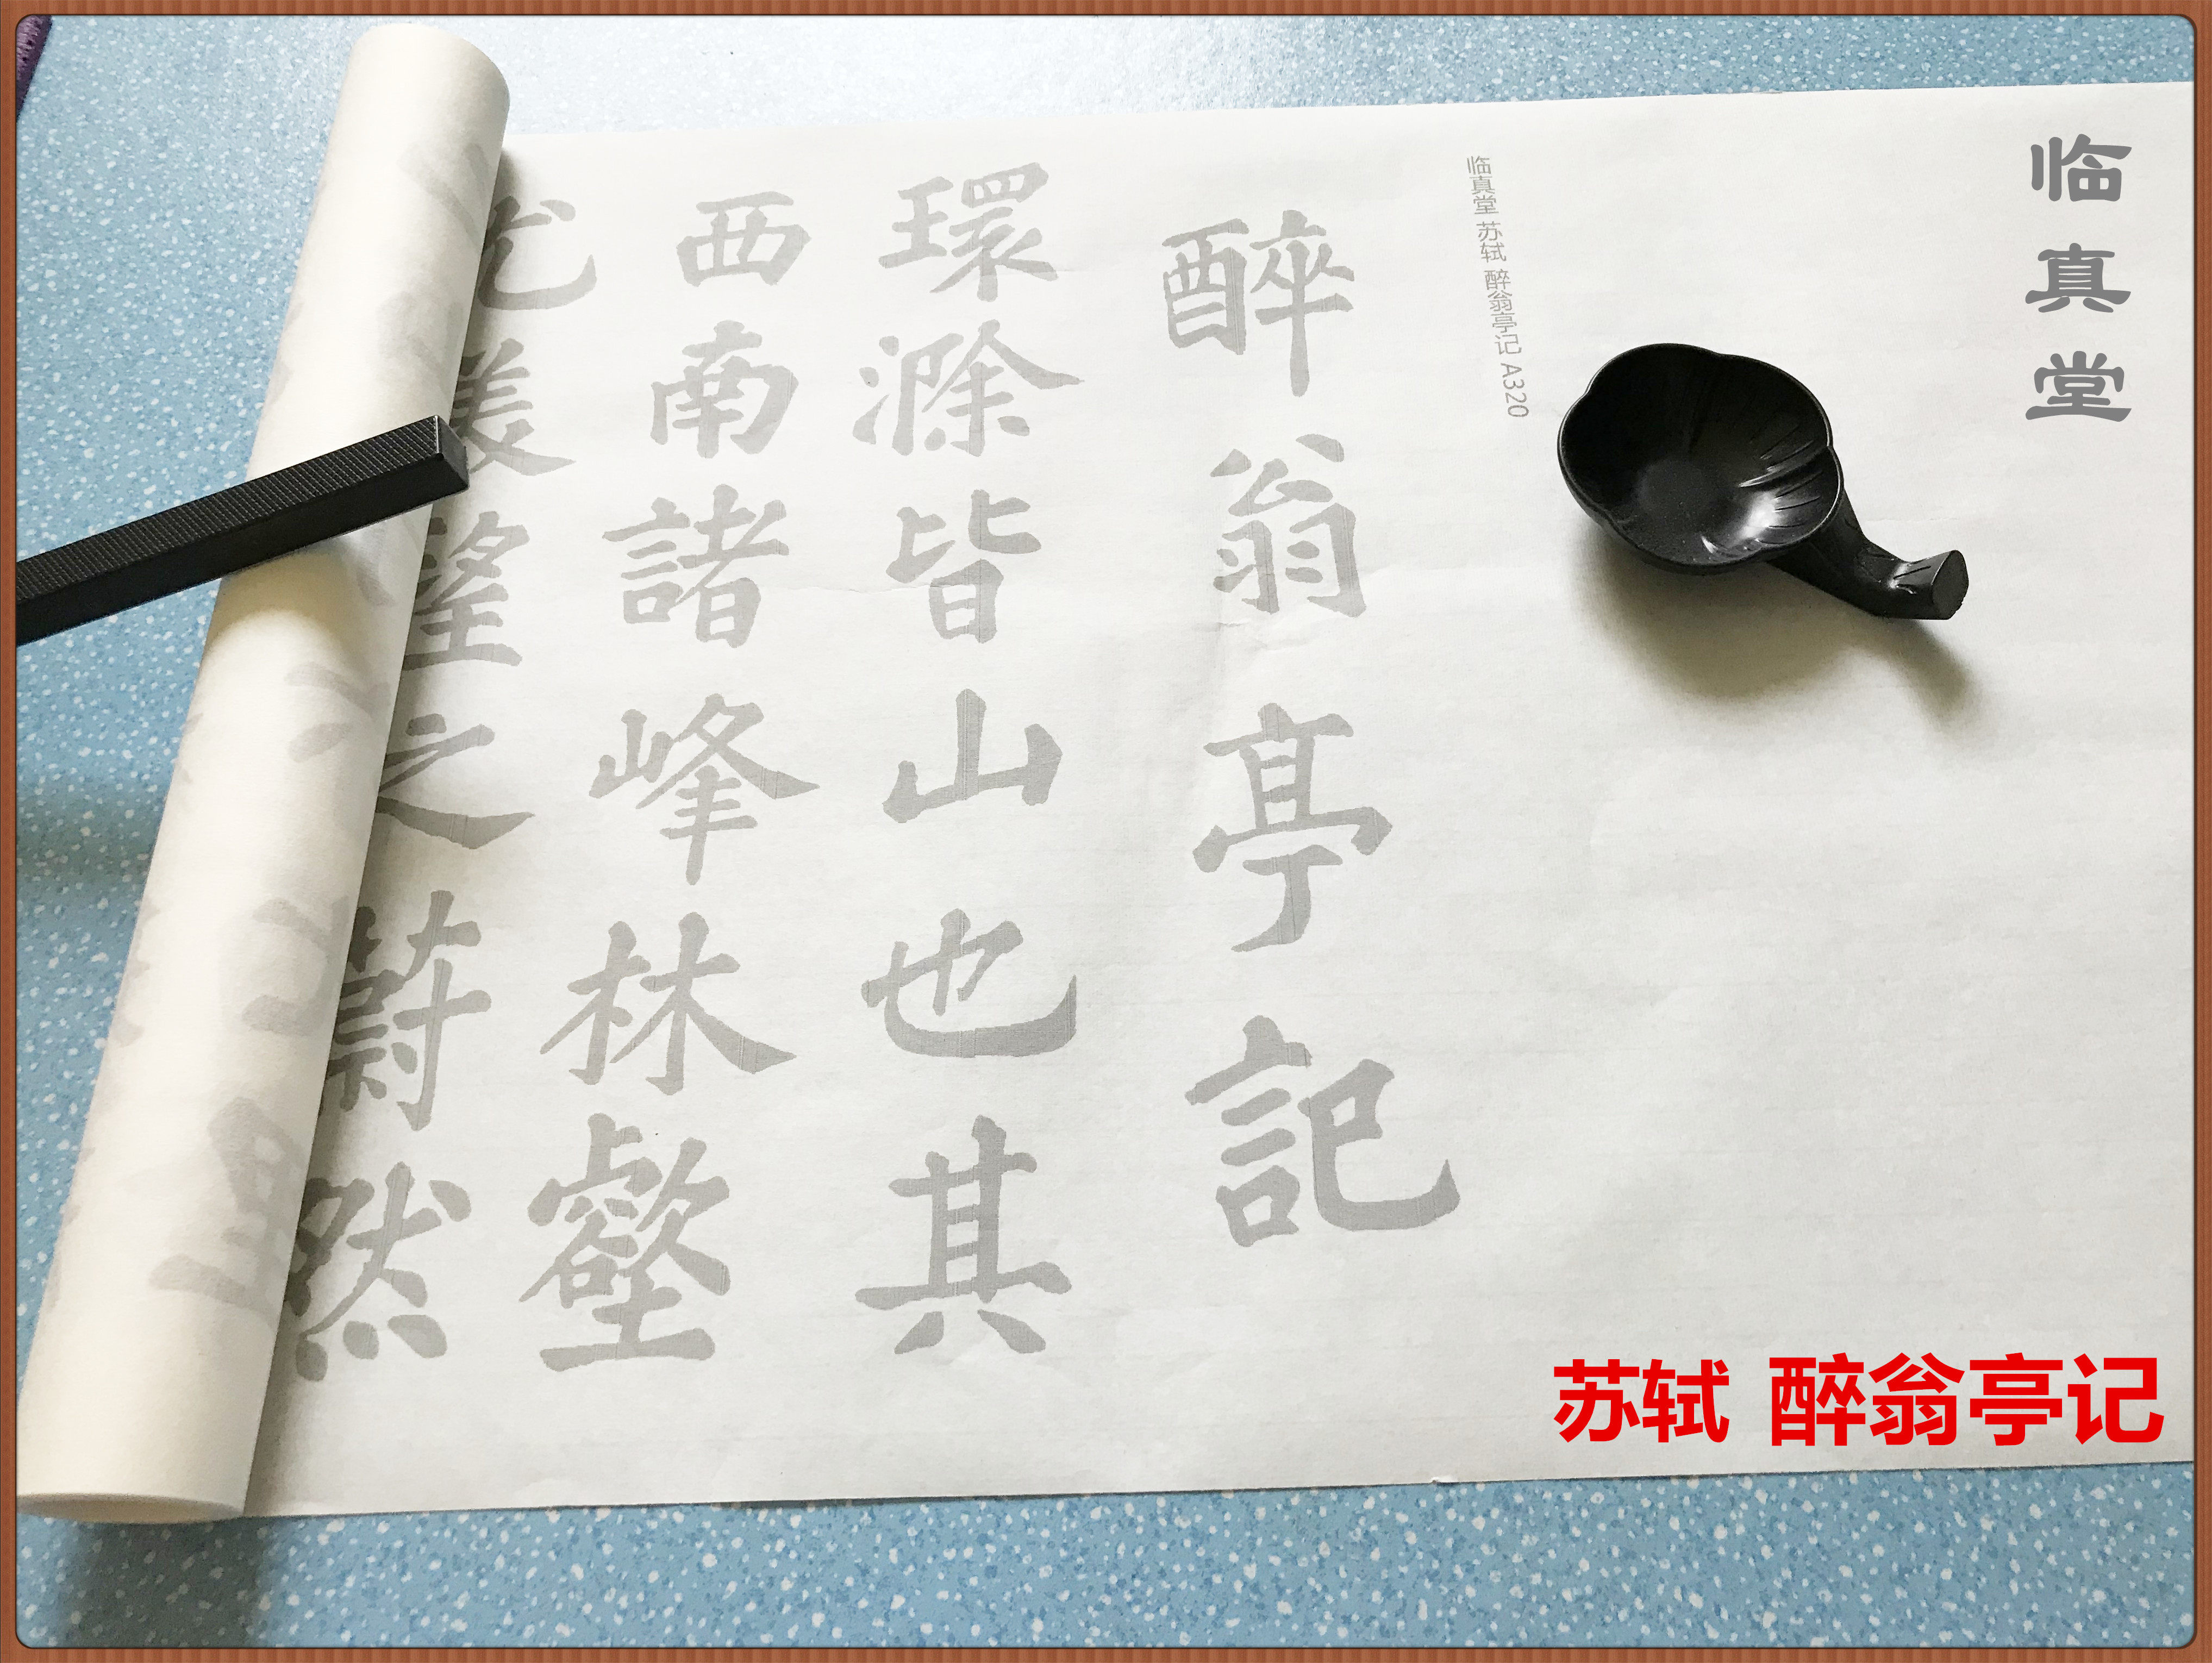 临真堂
临真堂 苏轼 醉翁亭记 A320
醉翁亭記
環滁皆山也其
西南諸峰林壑
尤美望之蔚然
苏轼 醉翁亭记